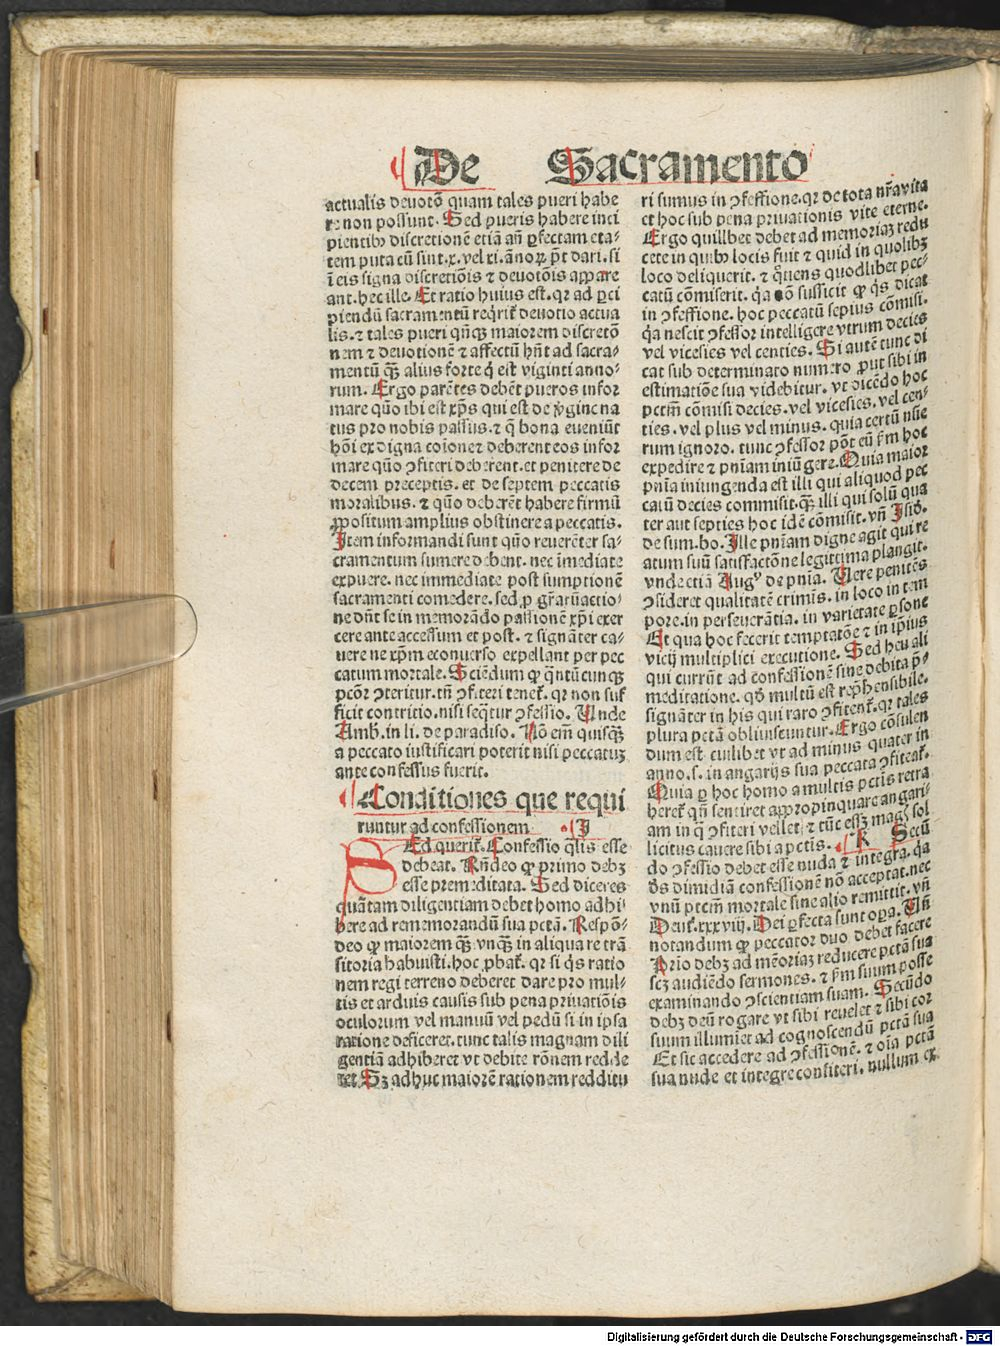 De Sacramento
actualis deuotõ quam tales pueri habe
re non possunt. Sed pueris habere inci
pientibꝰ discretionẽ etiã añ ꝑfectam eta-
tem puta cũ sint .x. vel xi. ãnoꝝ põt dari. si
ĩ eis signa discretiõis ⁊ deuotõis appare
ant. hec ille. Et ratio huius est. qꝛ ad ꝑci
piendũ sacramentũ reqͥrit̃ deuotio actua
lis. ⁊ tales pueri qñqꝫ maiorem discretõ
nem ⁊ deuotionẽ ⁊ affectũ hñt ad sacra-
mentũ qꝫ̃ alius forte qͥ est viginti anno-
rum. Ergo parẽtes debẽt pueros infor
mare quõ ibi est xp̃s qui est de ꝟgine na
tus pro nobis passus. ⁊ q̃ bona eueniũt
hõi ex digna cõione ⁊ deberent eos infor
mare quõ ꝯfiteri deberent. et penitere de
decem preceptis. et de septem peccatis
mortalibus. ⁊ quõ deberẽt habere firmũ
ꝓpositum amplius obstinere a peccatis.
Item informandi sunt quõ reuerẽter sa-
cramentum sumere debent. nec ĩmediate
expuere. nec immediate post sumptionẽ
sacramenti comedere. sed ꝓ gr̃aꝝ actio-
ne dñt se in memorãdo passionẽ xp̃i exer
cere ante accessum et post. ⁊ signãter ca-
uere ne xp̃m econuerso expellant per pec
catum mortale. Sciẽdum ꝙ q̃ntũcunqꝫ
pctõr ꝯteritur. tñ ꝯfiteri tenet̃. qꝛ non suf
ficit contritio. nisi seq̃tur ꝯfessio. Unde
Amb. in li. de paradiso. Nõ em̃ quisqꝫ̃
a peccato iustificari poterit nisi peccatuꝫ
ante confessus fuerit.
Conditiones que requi
runtur ad confessionem J
SEd querit̃. Confessio q̃lis esse
debeat. Rñdeo ꝙ primo debꝫ
esse premeditata. Sed diceres
quãtam diligentiam debet homo adhi
bere ad rememorandũ sua pctã. Respõ-
deo ꝙ maiorem qꝫ̃ vnqꝫ̃ in aliqua re trã
sitoria habuisti. hoc ꝓbat̃. qꝛ si qͥs ratio
nem regi terreno deberet dare pro mul-
tis et arduis causis sub pena priuatiõis
oculorum vel manuũ vel pedũ si in ipsa
ratione deficeret. tunc talis magnam dili
gentiã adhiberet vt debite rõnem redde
ret. Sꝫ adhuc maiorẽ rationem redditu
ri sumus in ꝯfessione. qꝛ de tota nr̃a vita
et hoc sub pena priuationis vite eterne.
Ergo quilibet debet ad memoriaꝫ redu
cere in quibꝰ locis fuit ⁊ quid in quolibꝫ
loco deliquerit. ⁊ qͦtiens quodlibet pec-
catũ cõmiserit. q̃a nõ sufficit ꝙ qͥs dicat
in ꝯfessione. hoc peccatũ sepius cõmisi.
q̃a nescit ꝯfessor intelligere vtrum decies
vel vicesies vel centies. Si autẽ tunc di
cat sub determinato numero ꝓut sibi in
estimatiõe sua videbitur. vt dicẽdo hoc
pctm̃ cõmisi decies. vel vicesies. vel cen-
ties. vel plus vel minus. quia certũ nũe
rum ignoro. tunc ꝯfessor põt eũ ẜm hoc
expedire ⁊ pniam iniũgere. Quia maior
pnia iniungenda est illi qui aliquod pec
catũ decies commisit. qꝫ̃ illi qui solũ qua
ter aut septies hoc idẽ cõmisit. vñ Isid.
de sum. bo. Ille pniam digne agit qui re
atum suũ satisfactõne legittima plangit.
vnde etiã Augꝰ de pnia. Uere penitẽs
ꝯsideret qualitatẽ criminis. in loco in tem
pore. in perseuerãtia. in varietate ꝑsone
Et qua hoc fecerit temptatõe ⁊ in ipsius
vicij multiplici executione. Sed heu ali
qui currũt ad confessionẽ sine debita p̃-
meditatione. qd̃ multũ est rep̃hensibile.
signãter in his qui raro ꝯfitent̃. qꝛ tales
plura pctã obliuiscuntur. Ergo cõsulen
dum est cuilibet vt ad minus quater in
anno. s. in angarijs sua peccata ꝯfiteat̃.
Quia ꝑ hoc homo a multis pctis retra
heret̃ qñ sentiret appropinquare angari-
am in q̃ ꝯfiteri vellet ⁊ tũc essꝫ mag̃ sol
licitus cauere sibi a pctis. K Secũ
do ꝯfessio debet esse nuda ⁊ integra. q̃a
dñs dimidiã confessionẽ nõ acceptat. nec
vnũ pctm̃ mortale sine alio remittit. vñ
Deut̃. xxxviij. Dei ꝑfecta sunt oꝑa. Uñ
notandum ꝙ peccator duo debet facere
Prio debꝫ ad mẽoriaꝫ reducere pctã sua
scꝫ audiẽdo sermones. ⁊ ẜm suum posse
examinando ꝯscientiam suam. Secũdo
debꝫ deũ rogare vt sibi reuelet ⁊ sibi cor
suum illumiet ad cognoscendũ pctã sua
Et sic accedere ad ꝯfessionẽ. ⁊ oĩa pctã
sua nude et integre confiteri. nullum ex
Digitalisierung gefördert durch die Deutsche Forschungsgemeinschaft - DFG